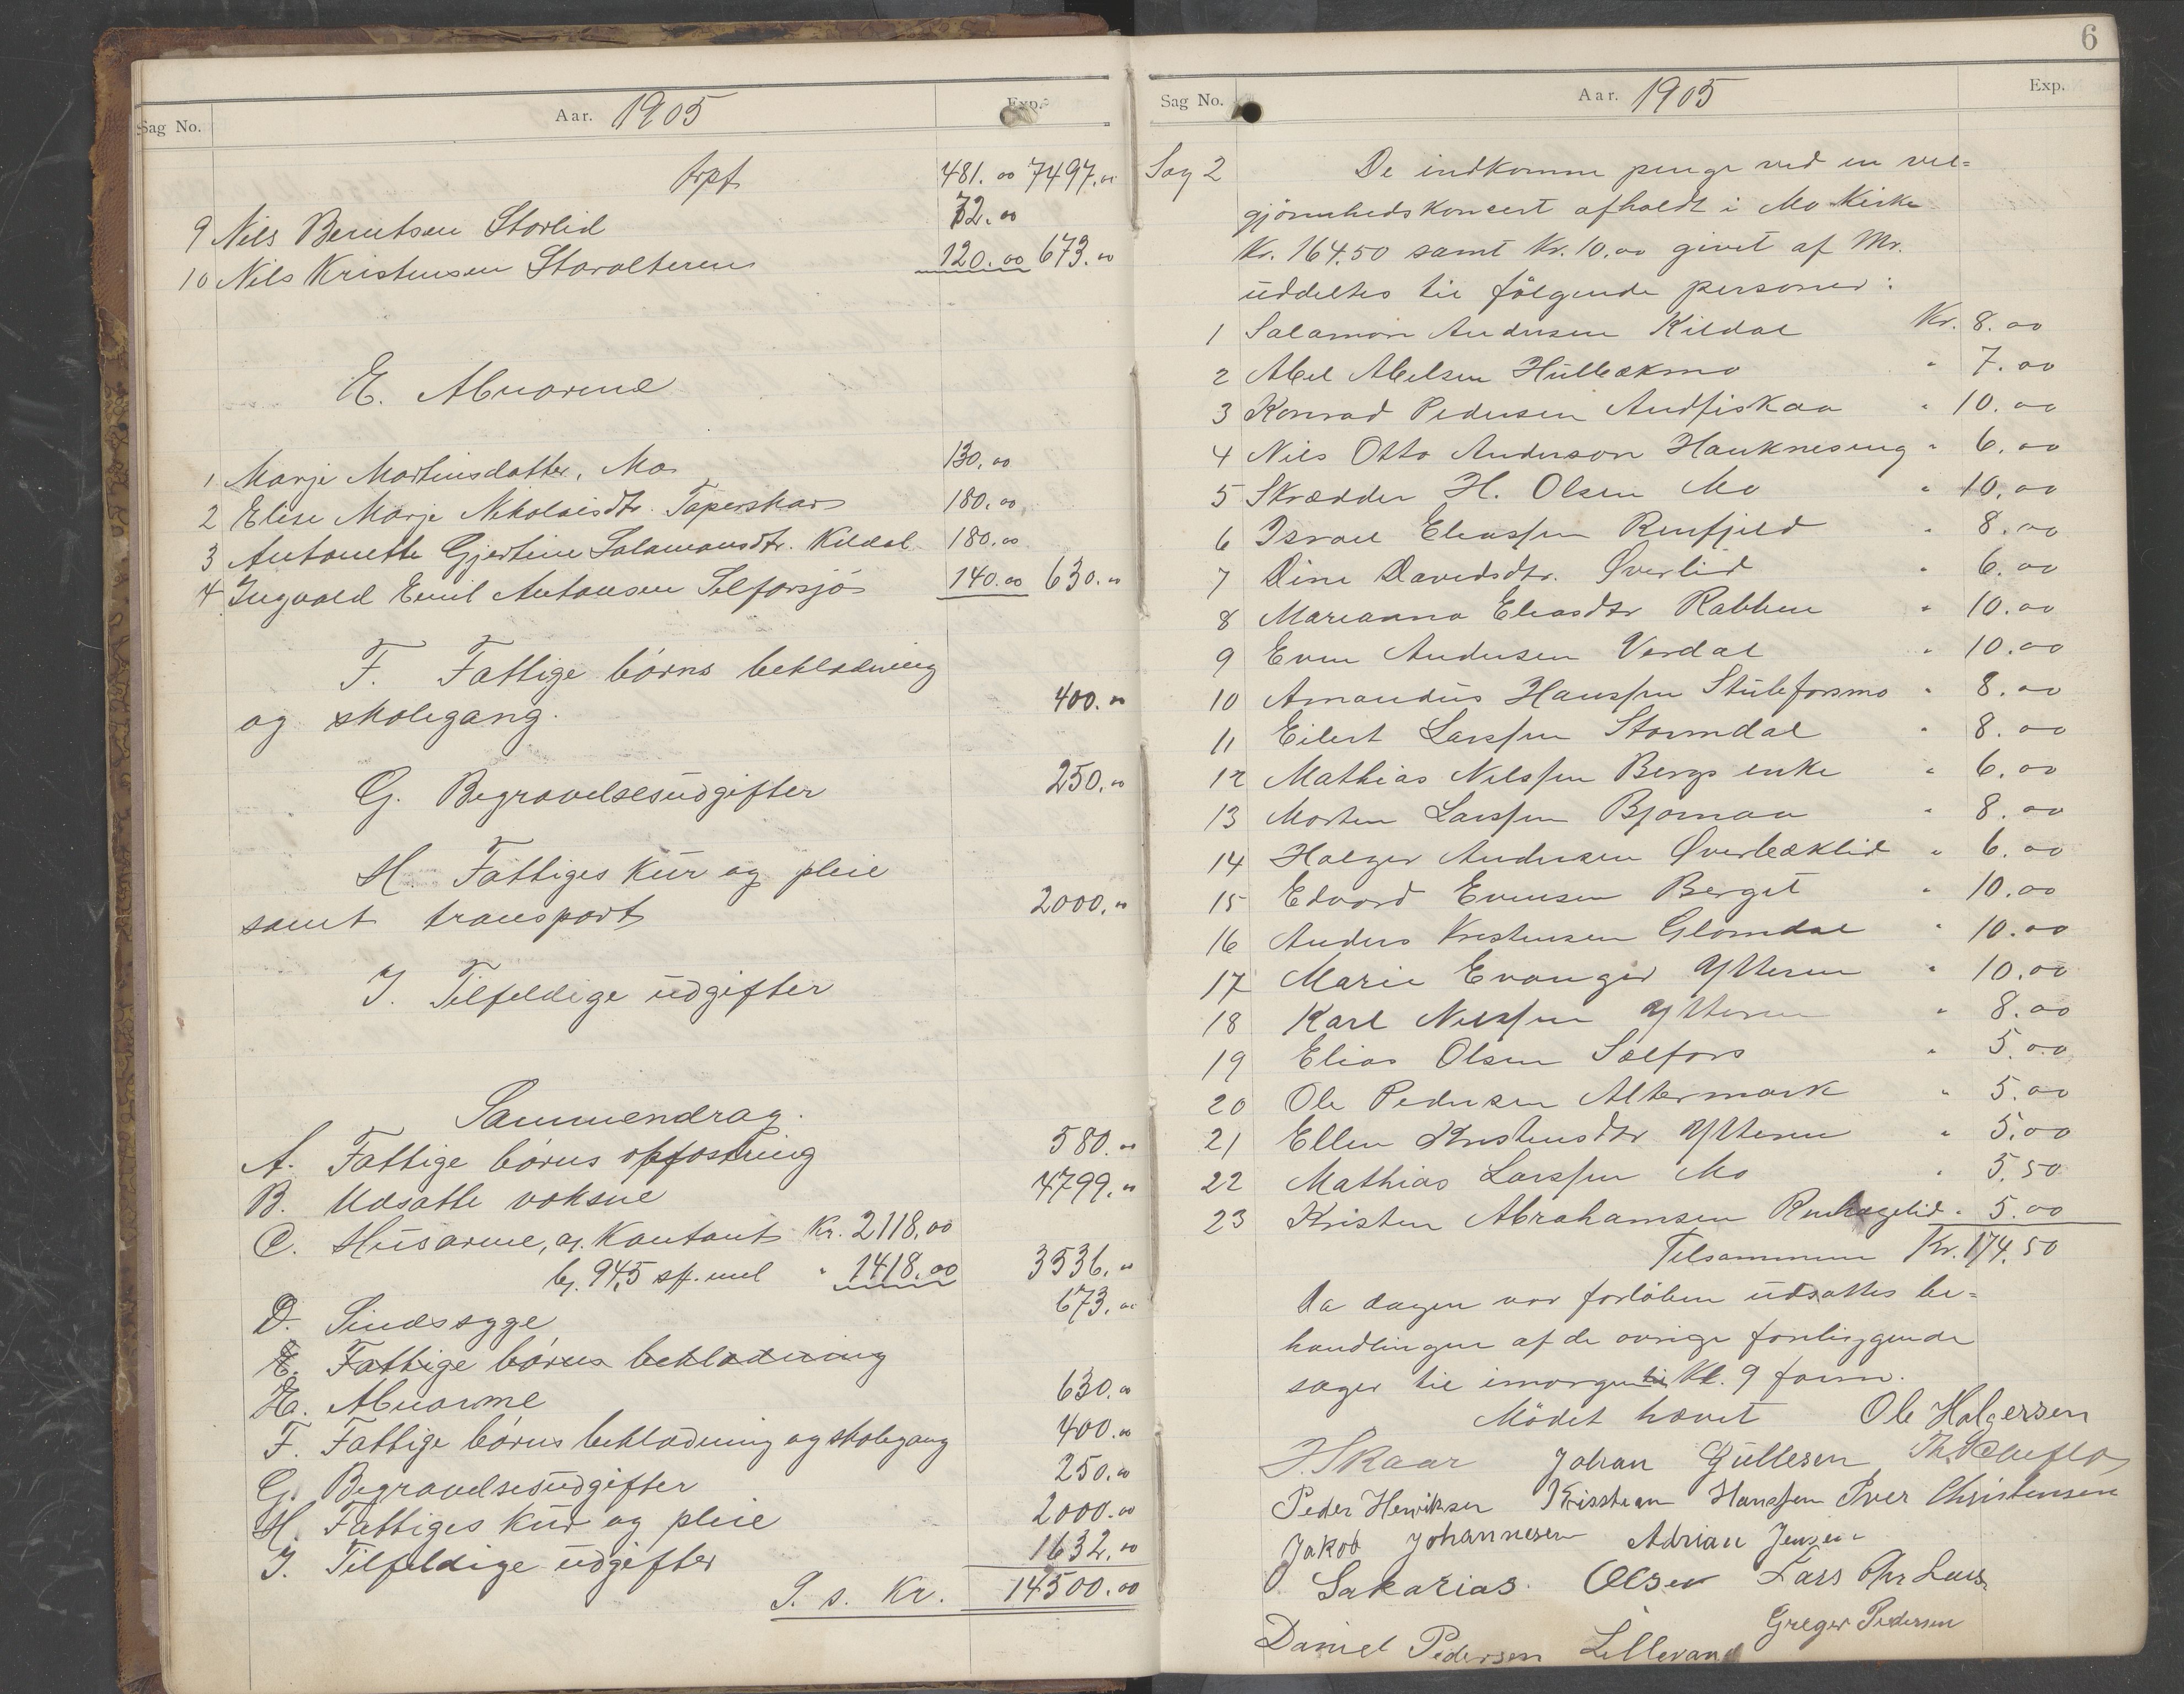 Sag No. Aar. 1905 Exp.
trpt 481.00 7497.00
9 Nils Berntsen Storlid 72.00
10 Nils Kristensen Storalteren 120.00 673.00
E. Abnorme
1 Marje Martinsdatter, Mo 130.00
2 Elise Marje Nikolaisdtr. Taperskar 180.00
3 Antonette Gjertine Salamonsdtr. Kildal 180.00
4 Ingvald Emil Antonsen Selforsjö 140.00 630.00
F. Fattige börns beklædning
og skolegang. 400.00
G. Begravelsesudgifter 250.00
H. Fattiges Kur og pleie
samt transport 2000.00
I. Tilfeldige udgifter
Sammendrag.
A. Fattige börns opfostring 580.00
B. Udsatte voksne 4799.00
C. Husarme, a. Kontant Kr. 2118.00
b. 94,5 sk. mel " 1418.00 3536.00
D. Sindssyge 673.00
E. Fattige börns beklædning
E. Abnorme 630.00
F. Fattige börns beklædning og skolegang 400.00
G. Begravelsesudgifter 250.00
H. Fattiges Kur og pleie 2000.00
I. Tilfeldige udgifter 1632.00
T. s. Kr. 14500.00
6
Sag No. Aar. 1905 Exp.
Sag 2 De indkomne penge ved en vel=
gjörenhedskoncert afholdt i Mo Kirke
Kr. 164.50 samt Kr. 10.00 givet af Mr.
uddeltes til fölgende personer:
1 Salamon Andersen Kildal Kr. 8.00
2 Abel Abelsen Hulbækmo " 7.00
3 Konrad Pedersen Andfiskaa " 10.00
4 Nils Otto Anderson Haukneseng " 6.00
5 Skrædder H. Olsen Mo " 10.00
6 Israel Eliassen Renfjeld " 8.00
7 Dine Davidsdtr. Øverlid " 6.00
8 Marianna Eliasdtr Rabben " 10.00
9 Even Andersen Verdal " 10.00
10 Amandus Hanssen Stuleforsmo " 8.00
11 Eilert Larssen Stormdal " 8.00
12 Mathias Nilssen Bergs enke " 6.00
13 Morten Larssen Bjornaa " 8.00
14 Holger Andersen Øverbæklid " 6.00
15 Edvard Evensen Berget " 10.00
16 Anders Kristensen Glomdal " 10.00
17 Marie Evanger Ytteren " 10.00
18 Karl Nilssen Ytteren " 8.00
19 Elias Olsen Selfors " 5.00
20 Ole Pedersen Altermark " 5.00
21 Ellen Kristensdtr Ytteren " 5.00
22 Mathias Larssen Mo " 5.50
23 Kristen Abrahamsen Renhagelid " 5.00
Tilsammen Kr. 174.50
Da dagen var forlöben udsattes be=
handlingen af de øvrige foreliggende
sager til imorgen til Kl. 9 form.
Mödet hævet Ole Holgersen
J. Skaar Johan Gullesen Th.
Peder Henriksen Kristian Hanssen Iver Christensen
Jakob Johannesen Adrian Jensen
Sakarias. Olsen Lars Chr Lars
Greger Pedersen
Daniel Pedersen Lillevand